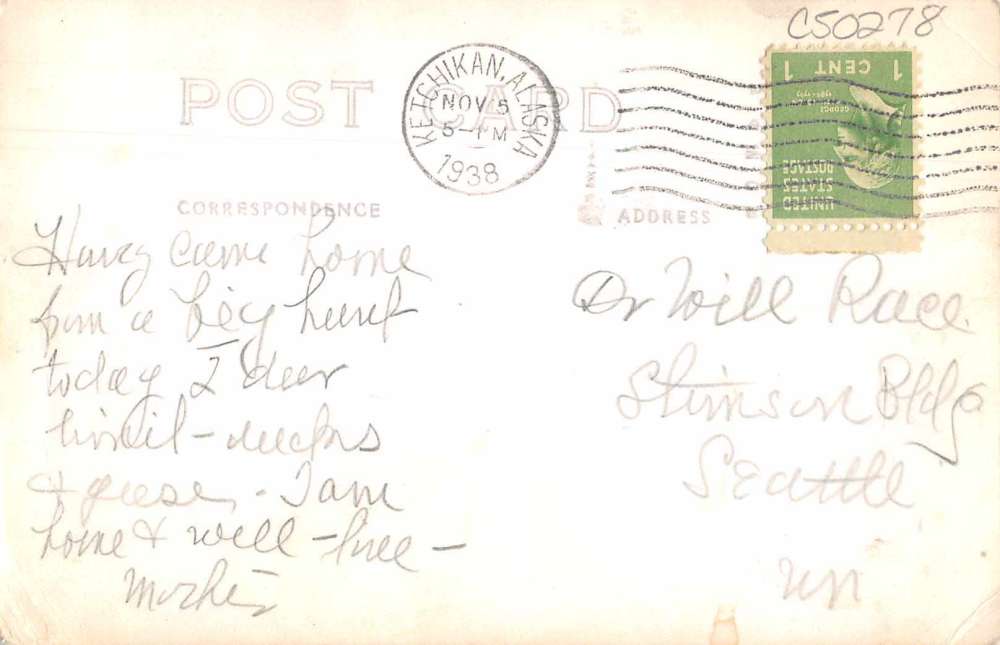 C50278
POST CARD
KETCHIKAN, ALASKA
NOV 5
5-PM
1938
1 CENT 1
UNITED
STATES
POSTAGE
CORRESPONDENCE
ADDRESS
Harry came home
from a big hunt
today 2 deer
limit - ducks
& geese - I am
home & well -
Dr Will Race
Stimson Bldg
Seattle
Wn